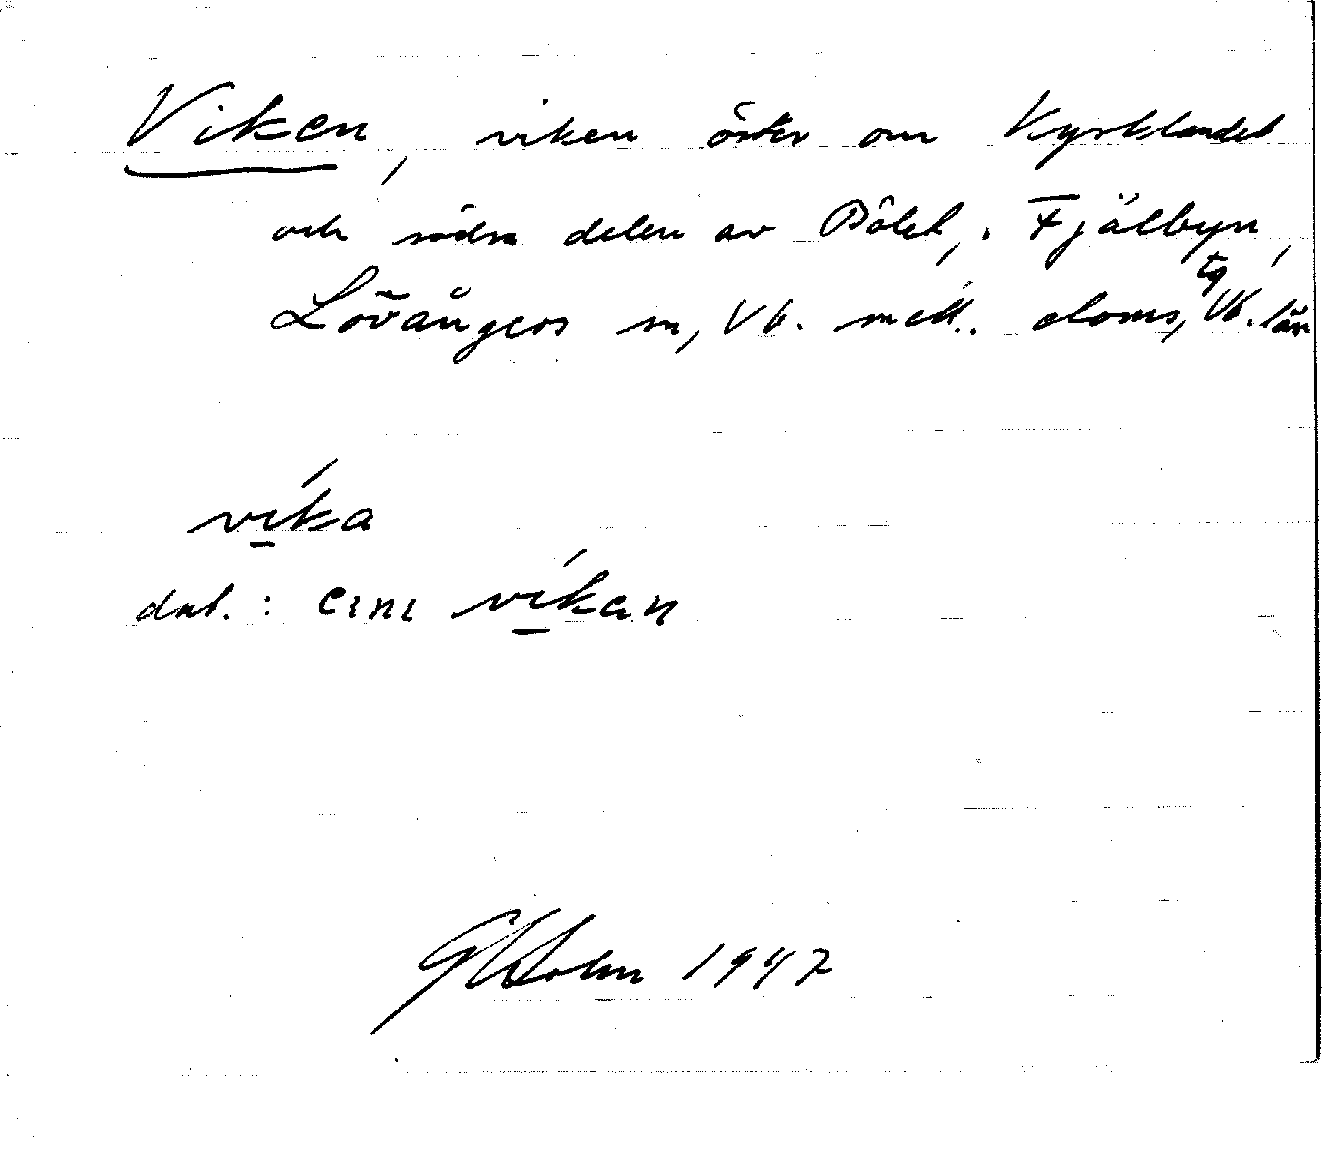 Viken, viken öster om Kyrklandet
och södra delen av Bölet, i Fjälbyn,
Lövångers sn, Vb. mell. doms, tg Vb. län
víka
dat.: eını víkan
Holm 1947